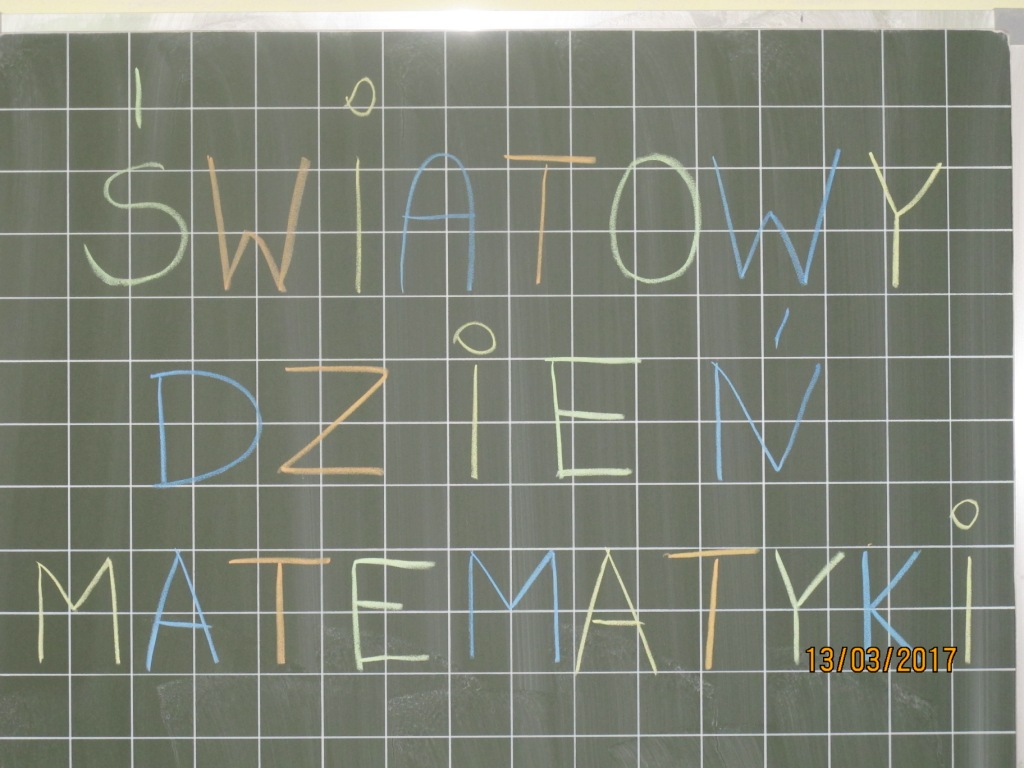 ŚWiATOWY
DZiEŃ
MATEMATYKi
13/03/2017